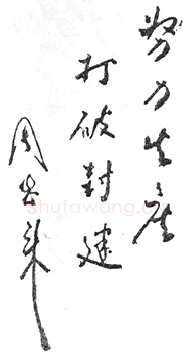 努力生产
打破封建
周恩来
shufawang.cn